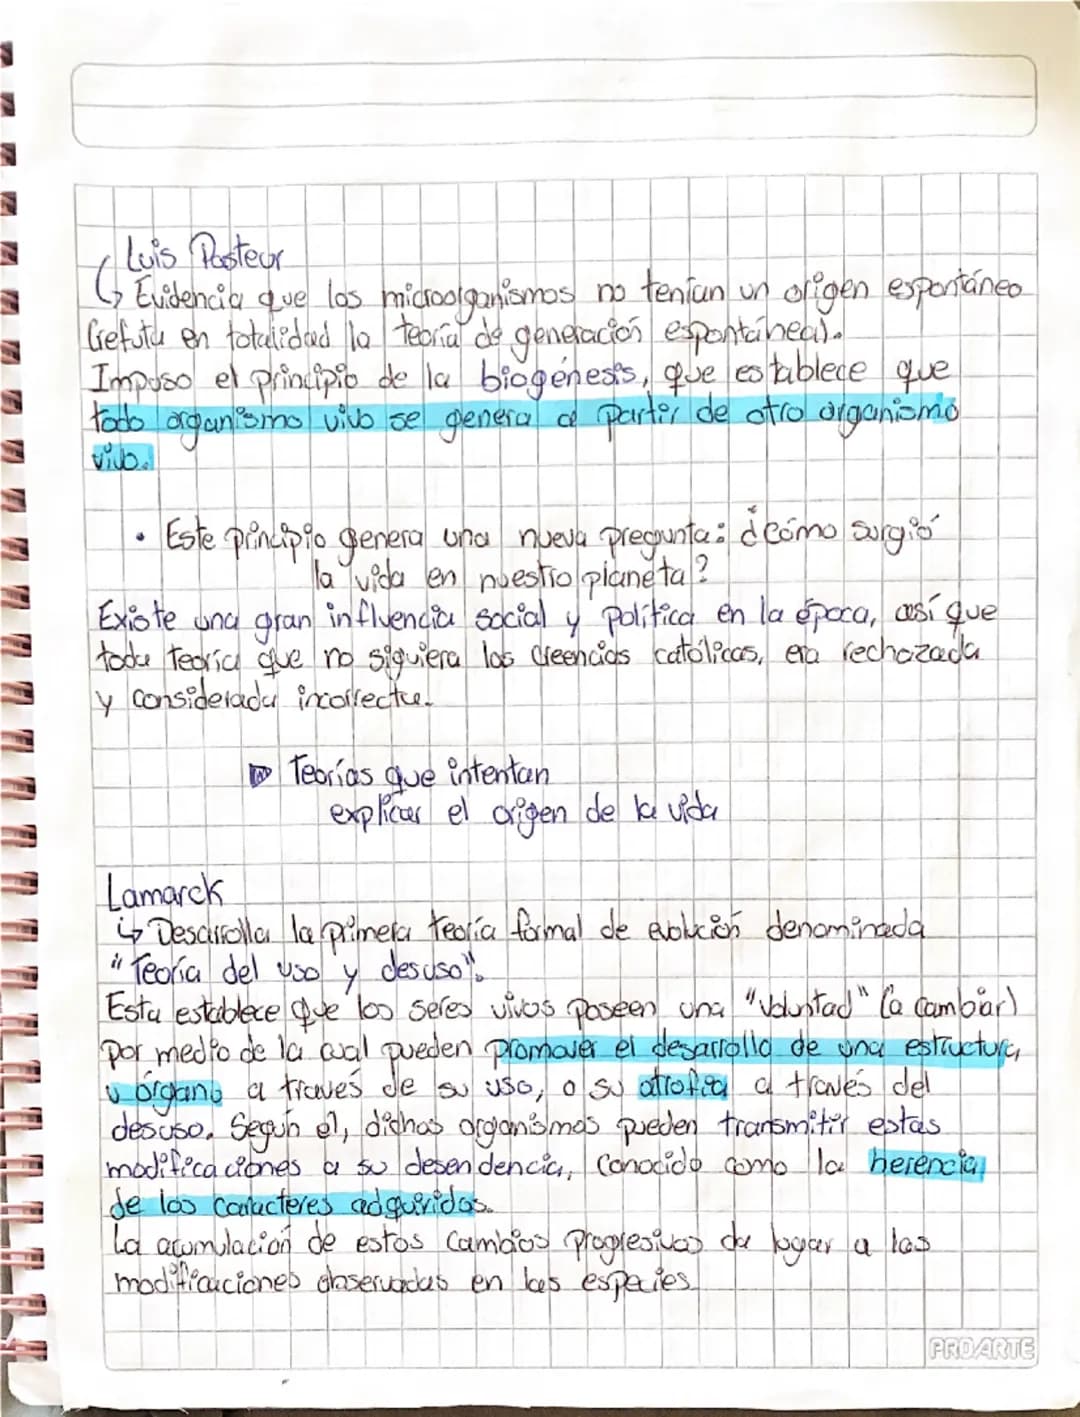 Luis Pasteur
↳ Evidencia que los microorganismos no tenían un origen espontáneo
(refuta en totalidad la teoría de generación espontánea).
Impuso el principio de la biogénesis, que establece que
todo organismo vivo se genera a partir de otro organismo
vivo.
• Este principio genera una nueva pregunta: ¿Cómo surgió
la vida en nuestro planeta?
Existe una gran influencia social y política en la época, así que
toda teoría que no siguiera las creencias católicas, era rechazada
y considerada incorrecta.
▷ Teorías que intentan
explicar el origen de la vida
Lamarck
↳ Desarrolla la primera teoría formal de evolución denominada
"Teoría del uso y desuso".
Esta establece que los seres vivos poseen una "voluntad" (a cambiar)
por medio de la cual pueden promover el desarrollo de una estructura
u órgano a través de su uso, o su atrofia a través del
desuso. Según él, dichos organismos pueden transmitir estas
modificaciones a su desendencia, conocido como la herencia
de los caracteres adquiridos.
La acumulación de estos cambios progresivos da lugar a las
modificaciones observadas en las especies
PROARTE